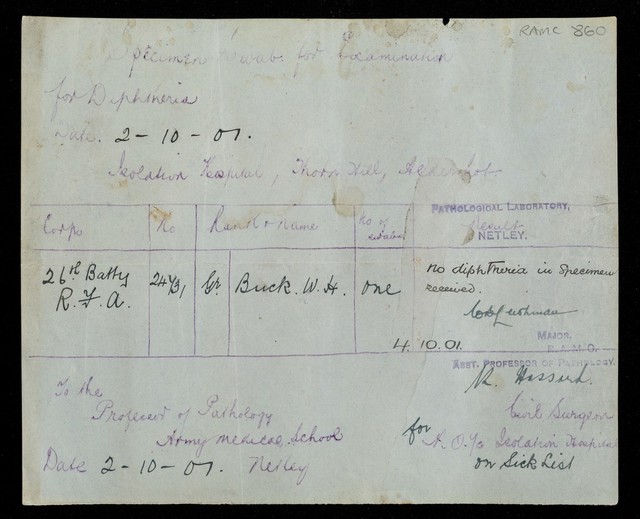 RAMC 860
Specimen Swab for Examination
for Diphtheria
Date. 2-10-01.
Isolation Hospital, Thorn Hill, Aldershot
Corps No Rank & Name No of swabs
PATHOLOGICAL LABORATORY,
Result
NETLEY.
26th Batty R.F.A. 2473, Gr. Buck. W.H. one
no diphtheria in specimen
received.
4. 10. 01.
MAJOR.
R.A.M.C.
ASST. PROFESSOR OF PATHOLOGY.
To the
Professor of Pathology
Army Medical School
Date 2-10-01. Netley
Civil Surgeon
for O.I/c Isolation Hospital
on Sick List